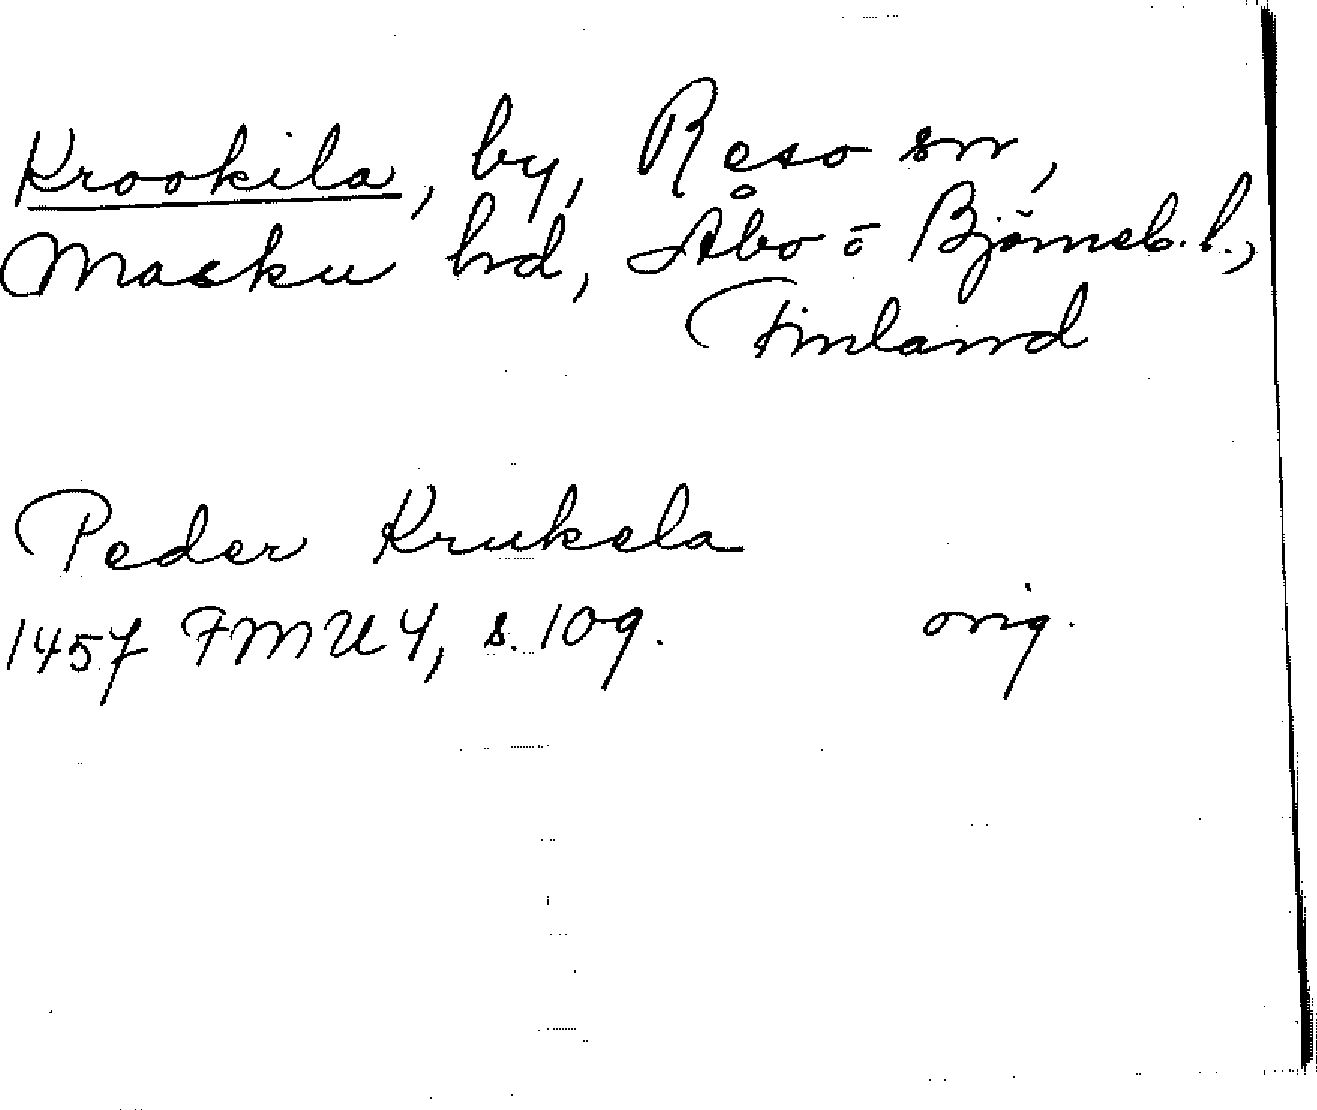 Krookila, by, Reso sn,
Masku hd, Åbo o Björneb. l.,
Finland
Peder Krukela
1457 FMU 4, s. 109. orig.